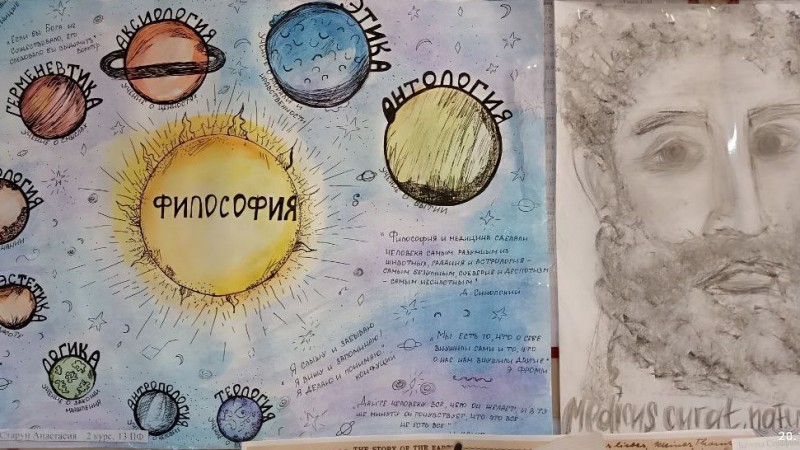 "Если бы Бога не
существовало, его
следовало бы выдумать"
Вольтер
АКСИОЛОГИЯ
УЧЕНИЕ О ЦЕННОСТЯХ
ЭТИКА
УЧЕНИЕ О МОРАЛИ И НРАВСТВЕННОСТИ
ГЕРМЕНЕВТИКА
УЧЕНИЕ О СМЫСЛАХ
ОНТОЛОГИЯ
УЧЕНИЕ О БЫТИИ
ФИЛОСОФИЯ
ЭСТЕТИКА
ЛОГИКА
УЧЕНИЕ О ЗАКОНАХ МЫШЛЕНИЯ
АНТРОПОЛОГИЯ
ТЕОЛОГИЯ
"Философия и медицина сделали
человека самым разумным из
животных, гадания и астрология -
самым безумным, суеверие и деспотизм
- самым несчастным!"
Д. Синопский
"Я слышу и забываю
Я вижу и запоминаю
Я делаю и понимаю"
Конфуций
"Мы есть то, что о себе
внушили сами и то, что
о нас нам внушили другие"
Э. Фромм
"Дайте человеку все, чего он желает, и в ту
же минуту он почувствует, что это все
не есть все"
Старун Анастасия 2 курс, 13 ПФ
Medicus curat, natu
THE STORY OF THE EART
20.